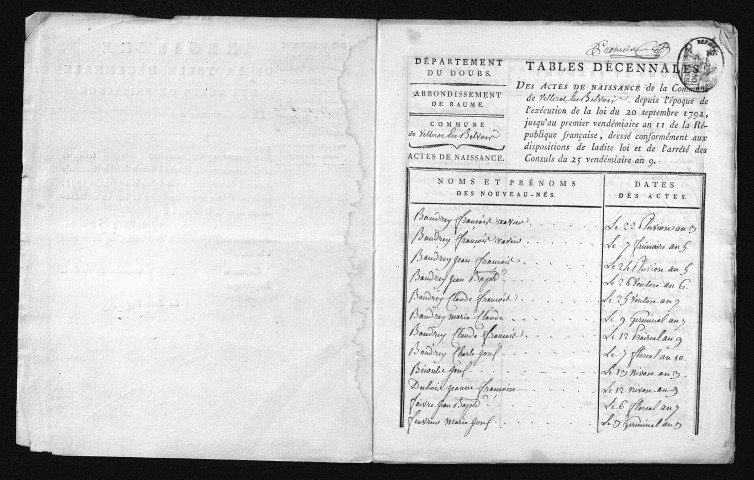 DÉPARTEMENT
DU DOUBS.
ARRONDISSEMENT
DE BAUME.
COMMUNE
de Villers les Belvoir
ACTES DE NAISSANCE.
TABLES DÉCENNALES
DES ACTES DE NAISSANCE de la Commune
de Villers les Belvoir, depuis l'époque de
l'exécution de la loi du 20 septembre 1792,
jusqu'au premier vendémiaire an 11 de la Ré-
publique française, dressé conformément aux
dispositions de ladite loi et de l'arrêté des
Consuls du 25 vendémiaire an 9.
NOMS ET PRÉNOMS
DES NOUVEAU-NÉS.
DATES
DES ACTES.
Baudrey françois xavier Le 22 Pluviose an 3
Baudrey françois xavier Le 7 frimaire an 5
Baudrey jean francois Le 24 Pluviose an 5
Baudrey jean Bapte Le 26 Ventose an 6
Baudrey Claude francois Le 25 Ventose an 7
Baudrey marie Claude Le 9 Germinal an 7
Baudrey Claude francois Le 12 Prairéal an 9
Baudrey Charle Josef Le 7 floréal an 10
Josef Le 13 nivose an 3
Dubois jeanne francoise Le 12 nivose an 9
faivre jean Bapte Le 6 floréal an 7
marie Josef Le 3 Germinal an 3